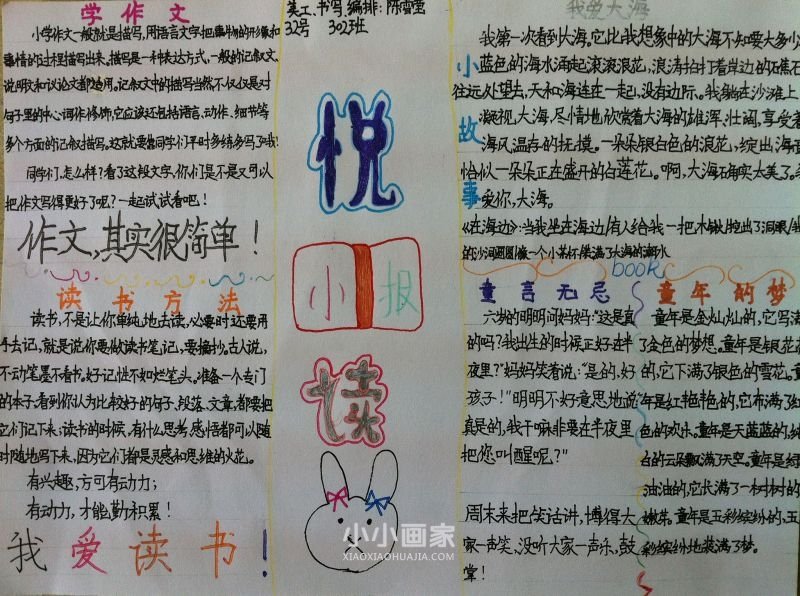 学作文
小学作文一般就是描写,用语言文字把事物的形像和
事情的过程描写出来。描写是一种表达方式,一般的记叙文、
说明文和议论文都适用。记叙文中的描写当然不仅仅是对
句子里的中心词作修饰,它应该还包括语言、动作、细节等
多个方面的记叙描写。这就要靠同学们平时多练多写了哦!
同学们,怎么样?看了这段文字,你们是不是又可以
把作文写得更好了呢?一起试试看吧!
作文,其实很简单!
读书方法
读书,不是让你单纯地去读,必要时还要用
手去记,就是说你要做读书笔记,要摘抄。古人说,
不动笔墨不看书。好记性不如烂笔头。准备一个专门
的本子,看到你认为比较好的句子、段落、文章,都要把
它们记下来,读书的时候,有什么思考、感悟都可以随
时随地写下来,因为它们都是灵感和思维的火花。
有兴趣,方可有动力;
有动力,才能勤积累!
我爱读书!
美工、书写、编排:陈雪莹
32号 302班
悦
小报
读
小小画家
XIAOXIAOHUAJIA.COM
我爱大海
小故事
我第一次看到大海。它比我想象中的大海不知要大多少
蓝色的海水涌起滚滚浪花,浪涛拍打着岸边的礁石
往远处望去,天和海连在一起,没有边际。我躺在沙滩上
凝视大海,尽情地欣赏着大海的雄浑、壮阔,享受着
海风温存的抚摸。一朵朵银白色的浪花,绽出海面
恰似一朵朵正在盛开的白莲花。啊,大海确实太美了。
爱你,大海。
《在海边》:当我坐在海边/有人给我一把木锹/挖出了洞眼/我
的沙洞圆圆像一个小茶杯/装满了大海的潮水
book
童言无忌
六岁的明明问妈妈:“这是真
的吗?我出生的时候正好在半
夜里?”妈妈笑着说:“是的,好
孩子!”明明不好意思地说
真是的,我干嘛非要在半夜里
把您叫醒呢?”
周末来把笑话讲,博得大
家一声笑、没听大家一声乐,鼓
掌!
童年的梦
童年是金灿灿的,它写满
了金色的梦想。童年是银花花
的,它下满了银色的雪花。童
年是红艳艳的,它布满了红
色的欢乐。童年是天蓝蓝的,纯
白的云朵飘满了天空。童年是绿
油油的,它长满了一树树的
嫩芽。童年是五彩缤纷的,五
彩缤纷地装满了梦。